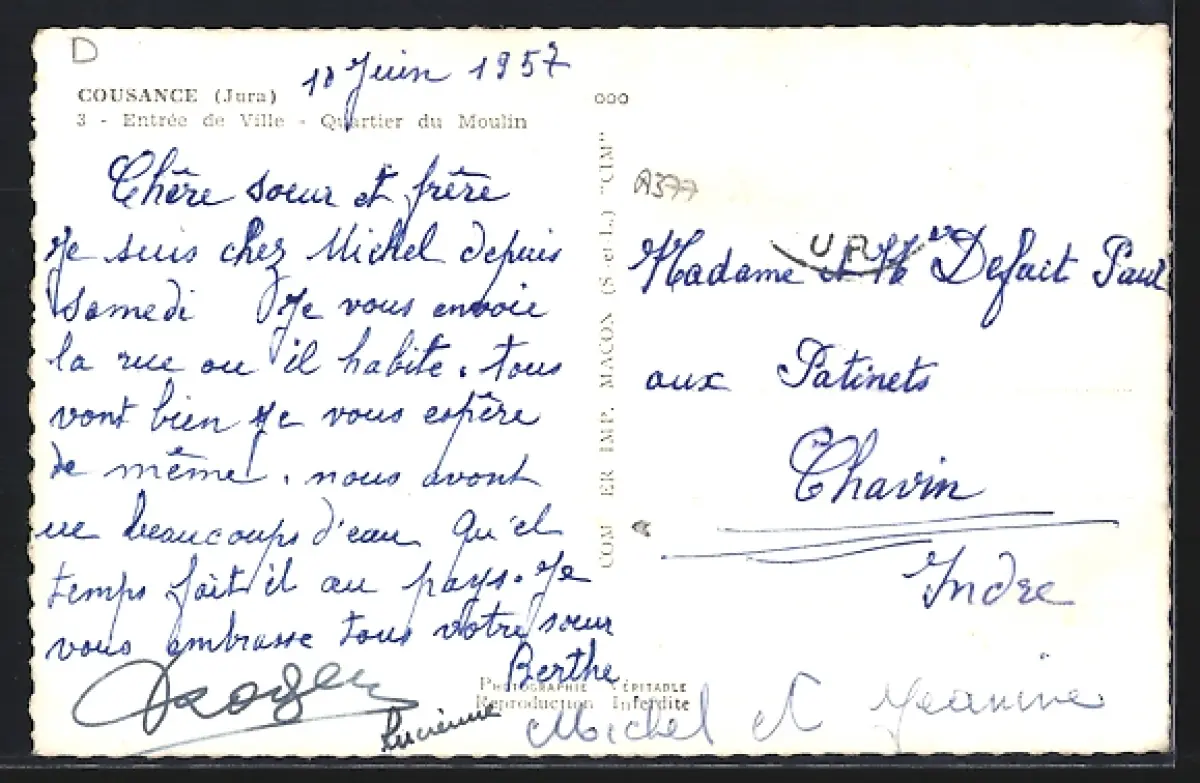 D
10 Juin 1957
COUSANCE (Jura)
3 - Entrée de Ville - Quartier du Moulin
Chêre soeur et frêre
Je suis chez Michel depuis
Samedi Je vous envoie
la rue ou il habite. tous
vont bien Je vous espêre
de même. nous avont
ue beaucoups d'eau Qu'el
temps fait il au pays. Je
vous embrasse tous votre soeur
Berthe
Roger
Lucienne
Michel et Jeanine
PHOTOGRAPHIE VÉRITABLE
Reproduction Interdite
COM ER IMP. MACON (S.-et-L.) "CIM"
000
A377
Madame et Mr Defait Paul
aux Patinets
Chavin
Indre